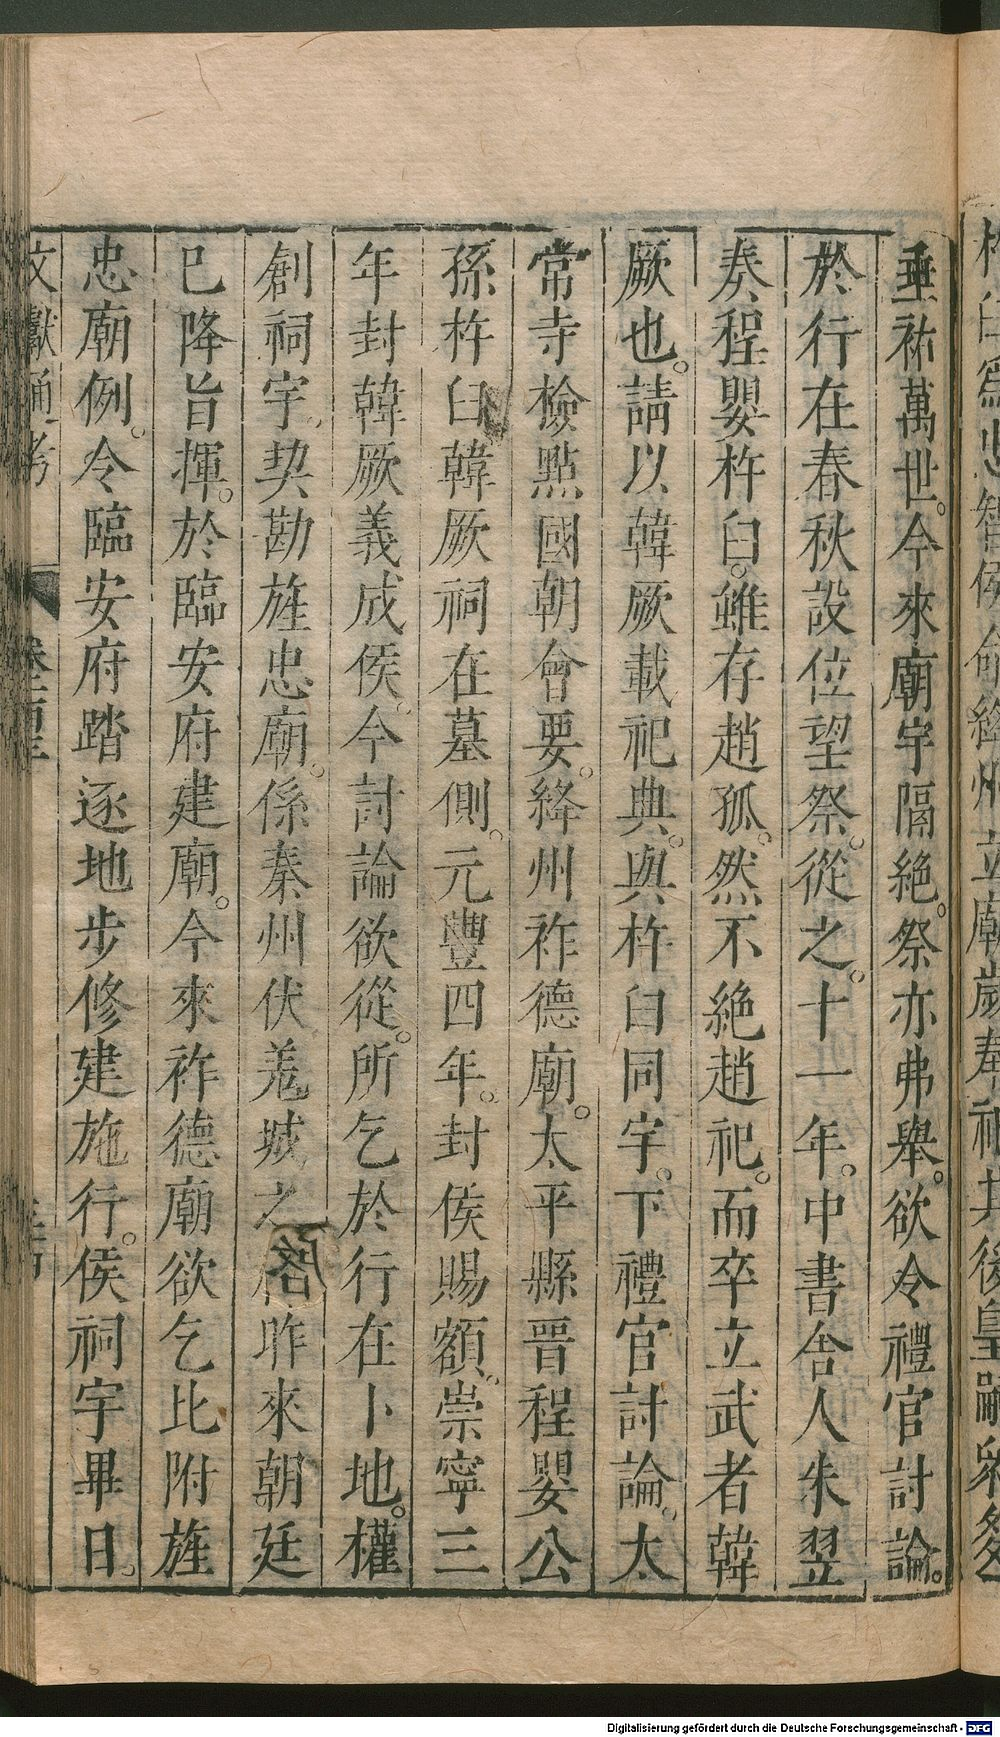 垂祐萬世。今來廟宇隔絶。祭亦弗舉。欲令禮官討論。
於行在春秋設位望祭。從之。十一年。中書舍人朱翌
奏。程嬰杵臼。雖存趙孤。然不絶趙祀。而卒立武者韓
厥也。請以韓厥載祀典。與杵臼同宇。下禮官討論。太
常寺檢點國朝會要。絳州祚德廟。太平縣晉程嬰公
孫杵臼韓厥祠在墓側。元豐四年。封侯賜額。崇寧三
年封韓厥義成侯。今討論欲從。所乞於行在卜地。權
創祠宇。契勘旌忠廟。係秦州伏羗城之 昨來朝廷
已降旨揮。於臨安府建廟。今來祚德廟欲乞比附旌
忠廟例。令臨安府踏逐地步修建施行。侯祠宇畢日。
文獻通考
Digitalisierung gefördert durch die Deutsche Forschungsgemeinschaft - DFG